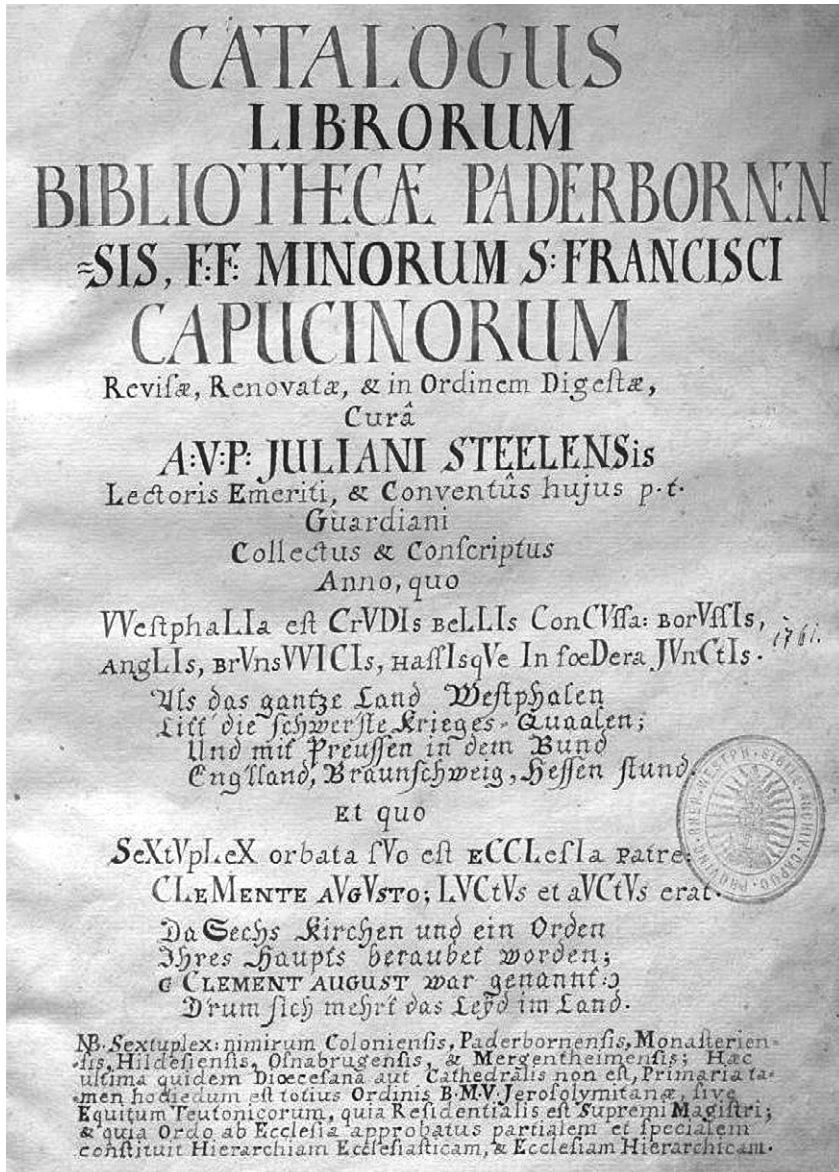 CATALOGUS
LIBRORUM
BIBLIOTHECÆ PADERBORNEN
=SIS, F:F: MINORUM S: FRANCISCI
CAPUCINORUM
Reviſæ, Renovatæ, & in Ordinem Digeſtæ,
Curâ
A:V:P: JULIANI STEELENSis
Lectoris Emeriti, & Conventûs hujus p.t.
Guardiani
Collectus & Conſcriptus
Anno, quo
VVeſtphaLIa eſt CrVDIs BeLLIs ConCVſſa: BorVſſIs,
AngLIs, BrVnsVVICIs, HaſſIsqVe In foeDera JVnCtIs.
1761.
Als das gantze Land Weſtphalen
Litt die ſchwerſte Krieges-Quaalen;
Und mit Preuſſen in dem Bund
Engelland, Braunſchweig, Heſſen ſtund.
Et quo
SeXtVpLeX orbata ſVo eſt ECCLeſIa Patre:
CLeMENTE AVGVSTO; LVCtVs et aVCtVs erat.
Da Sechs Kirchen und ein Orden
Ihres Haupts beraubet worden;
CLEMENT AUGUST war genannt:
Drum ſich mehrt das Leyd im Land.
NB. Sextuplex: nimirum Colonienſis, Paderbornenſis, Monaſterien-
-ſis, Hildeſienſis, Oſnabrugenſis, & Mergentheimenſis; Hæc
ultima quidem Dioeceſana aut Cathedralis non eſt, Primaria ta-
-men hodiedum eſt totius Ordinis B.M.V. Jeroſolymitanæ, ſive
Equitum Teutonicorum, quia Reſidentialis eſt Supremi Magiſtri;
& quia Ordo ab Eccleſia approbatus partialem et ſpecialem
conſtituit Hierarchiam Eccleſiaſticam, & Eccleſiam Hierarchicam.